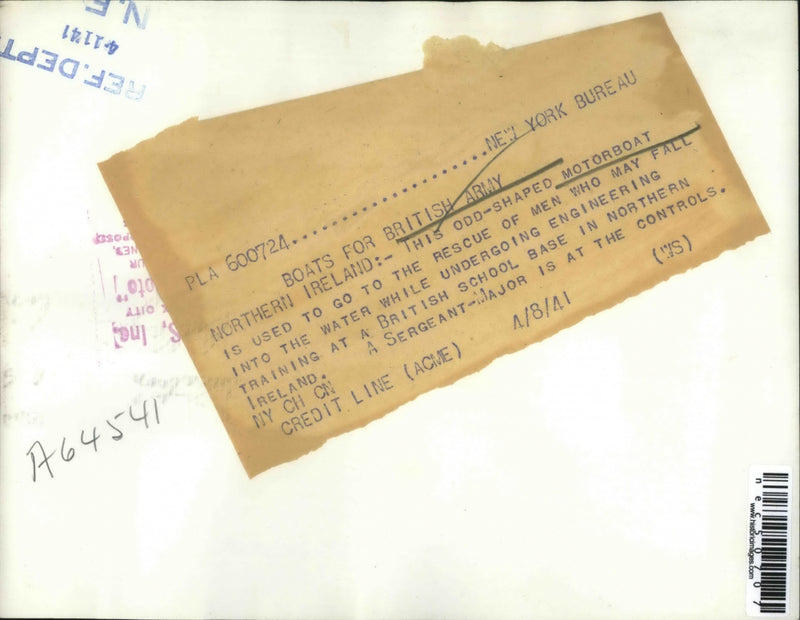 N.E
4-1141
REF. DEPT
PLA 600724..............................NEW YORK BUREAU
BOATS FOR BRITISH ARMY
NORTHERN IRELAND:- THIS ODD-SHAPED MOTORBOAT
IS USED TO GO TO THE RESCUE OF MEN WHO MAY FALL
INTO THE WATER WHILE UNDERGOING ENGINEERING
TRAINING AT A BRITISH SCHOOL BASE IN NORTHERN
IRELAND. A SERGEANT-MAJOR IS AT THE CONTROLS.
NY CH CN (WS)
CREDIT LINE (ACME) 4/8/41
S, Inc.
CITY
oto"
A64541
nec50707
www.historicimages.com